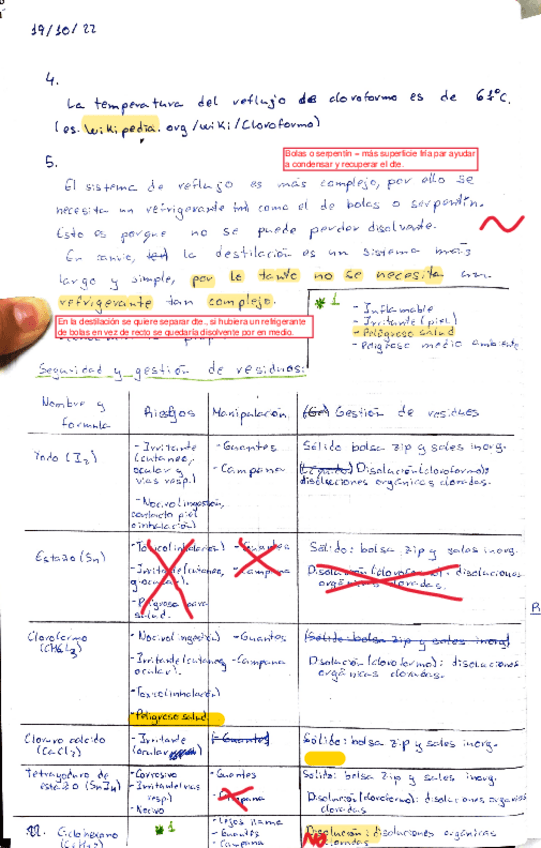 19/10/22
4.
La temperatura del reflujo de cloroformo es de 61°C.
(es.wikipedia.org/wiki/Cloroformo)
Bolas o serpentín – más superficie fría par ayudar
a condensar y recuperar el dte.
5.
El sistema de reflujo es más complejo, por ello se
necesita un refrigerante tal como el de bolas o serpentín.
Esto es porque no se puede perder disolvente.
la destilación es un sistema más
largo y simple, por lo tanto no se necesita un
refrigerante tan complejo.
En la destilación se quiere separar dte., si hubiera un refrigerante
de bolas en vez de recto se quedaría disolvente por en medio.
*1
- Inflamable
- Irritante (piel)
- Peligroso salud
- Peligroso medio ambiente
Seguridad y gestión de residuos:
Nombre y
formula
Riesgos
Manipulación
Gestión de residuos
Yodo (I2)
- Irritante
(cutanea,
ocular y
vias resp.)
- Nocivo (ingestión,
contacto piel
o inhalación)
- Guantes
- Campana
Sólido bolsa zip y sales inorg.
Disolución (cloroformo):
disoluciones orgánicas cloradas.
Estaño (Sn)
- Toxico (inhalación)
- Irritante (cutanea,
y ocular).
- Peligroso para
salud.
- Guantes
- Campana
Sólido: bolsa zip y sales inorg.
Disolución (cloroformo): disoluciones
orgánicas cloradas.
Cloroformo
(CHCl3)
- Nocivo (ingestión)
- Irritante (cutanea,
ocular).
- Toxico (inhalación)
- Peligroso salud
- Guantes
- Campana
(Sólido bolsa zip y sales inorg)
Disolución (cloroformo): disoluciones
orgánicas cloradas.
Cloruro calcico
(CaCl2)
- Irritante
(ocular)
- Guantes
Sólido: bolsa zip y sales inorg.
Tetrayoduro de
estaño (SnI4)
- Corrosivo
- Irritante (vias
resp.)
- Nocivo
- Guantes
- Campana
Solido: bolsa zip y sales inorg.
Disolución (cloroformo): disoluciones organicas
cloradas
Ciclohexano
(C6H12)
*1
- Lejos llama
- Guantes
- Campana
Disolución: disoluciones orgánicas
NO cloradas